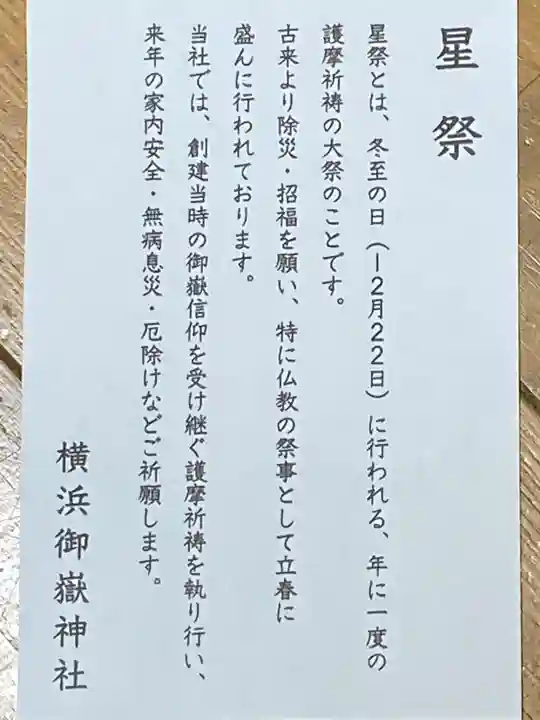 星祭
星祭とは、冬至の日(12月22日)に行われる、年に一度の
護摩祈祷の大祭のことです。
古来より除災・招福を願い、特に仏教の祭事として立春に
盛んに行われております。
当社では、創建当時の御嶽信仰を受け継ぐ護摩祈祷を執り行い、
来年の家内安全・無病息災・厄除けなどご祈願します。
横浜御嶽神社